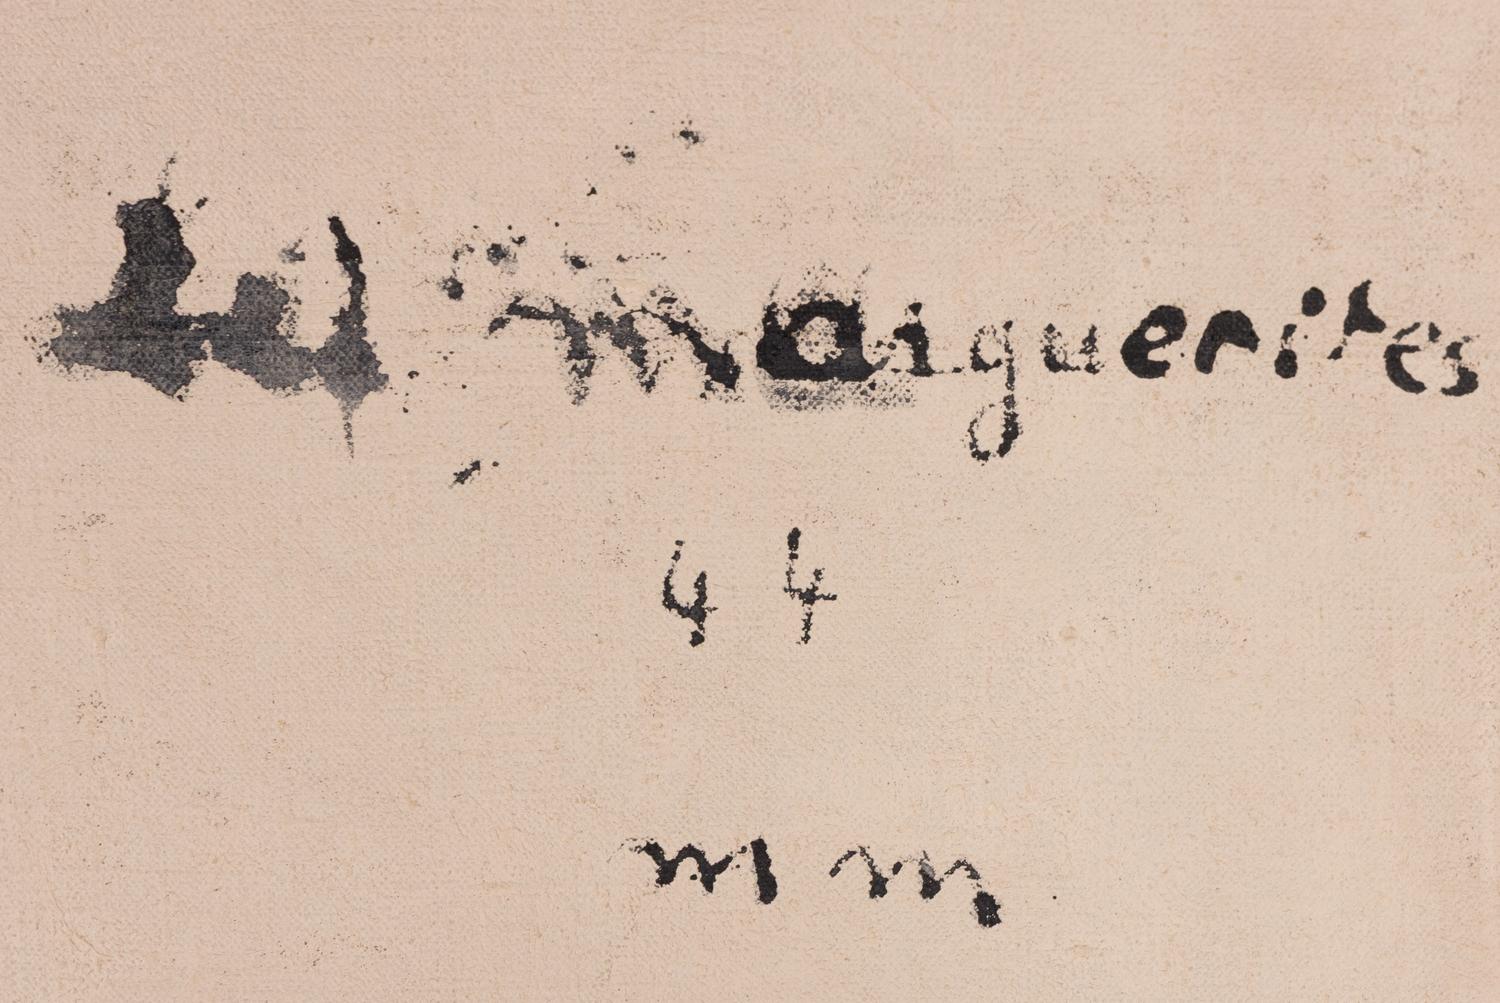 Les marguerites
44
m m